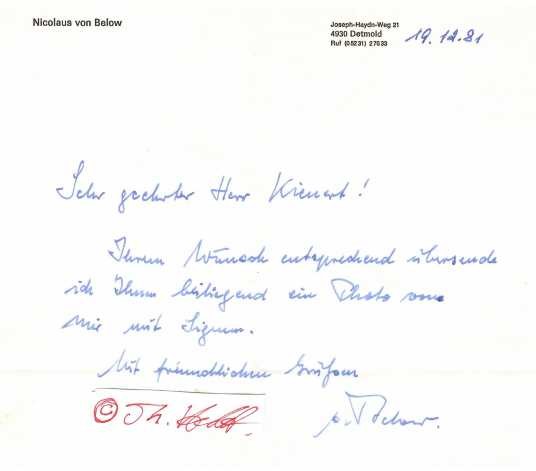 Nicolaus von Below
Joseph-Haydn-Weg 21
4930 Detmold
Ruf (05231) 27633
19.12.81
Sehr geehrter Herr Kienert!
Ihrem Wunsch entsprechend übersende
ich Ihnen beiliegend ein Photo von
mir mit Signum.
Mit freundlichen Grüßen
v. Below.
© Th.